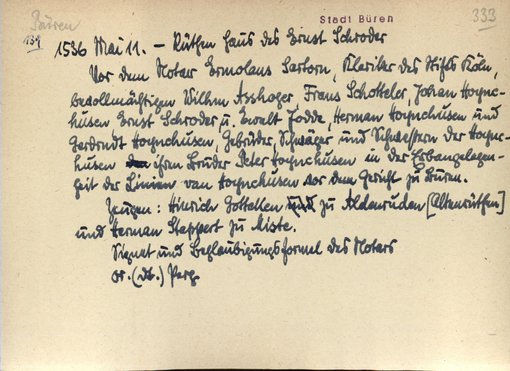 Büren
Stadt Büren
333
134
1536 Mai 11. – Rüthen Haus des Ernst Schroder
Vor dem Notar Ermolaus Sartorn, Kleriker des Stifts Köln,
bevollmächtigen Wilhm Asshoger, Frans Schotteler, Johan Hoync-
husen Ernst Schroder, u. Ewalt Fodde, Herman Hoynchusen und
Gerdrudt Hoynchusen, Gebrüder, Schwäger und Schwestern der Hoync-
husen ihren Bruder Peter Hoynchusen in der Erbangelegen-
heit der Linien van Hoynchusen vor dem Gericht zu Büren.
Zeugen: Hinrich Gottellen zu Aldenruden [Altenrüthen]
und Herman Stappert zu Miste.
Signet und Beglaubigungsformel des Notars
Or. (dt.) Perg.